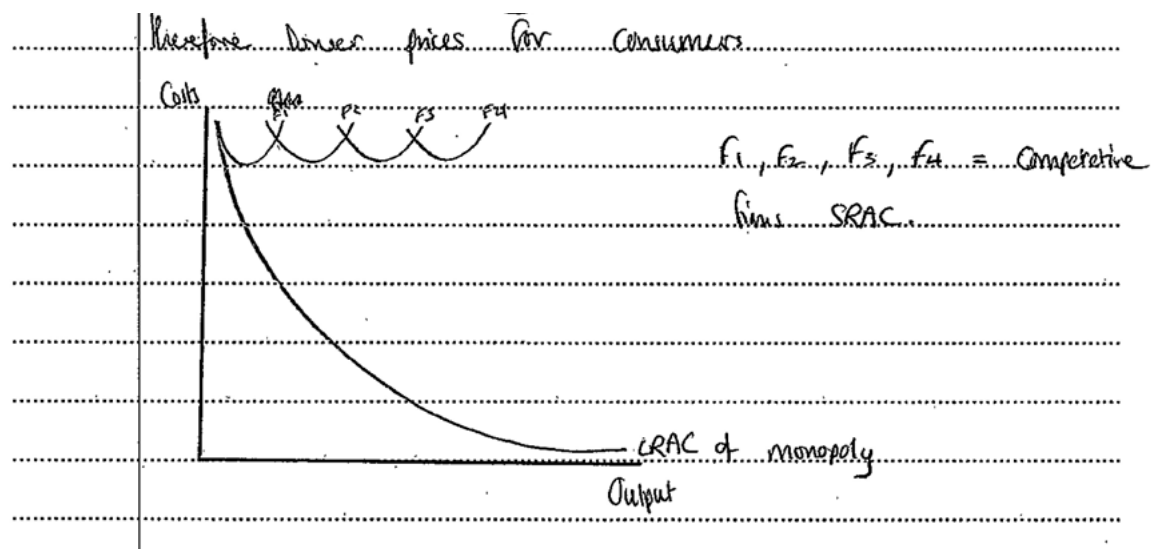 therefore lower prices for consumers
Costs
F1 F2 F3 F4
F1, F2, F3, F4 = Competetive
firms SRAC.
LRAC of monopoly
Output